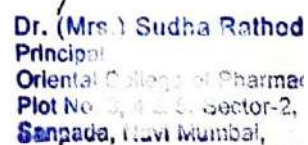 Dr. (Mrs.) Sudha Rathod
Principal
Oriental College of Pharmac
Plot No. 3, 4 & 5, Sector-2,
Sanpada, Navi Mumbai,